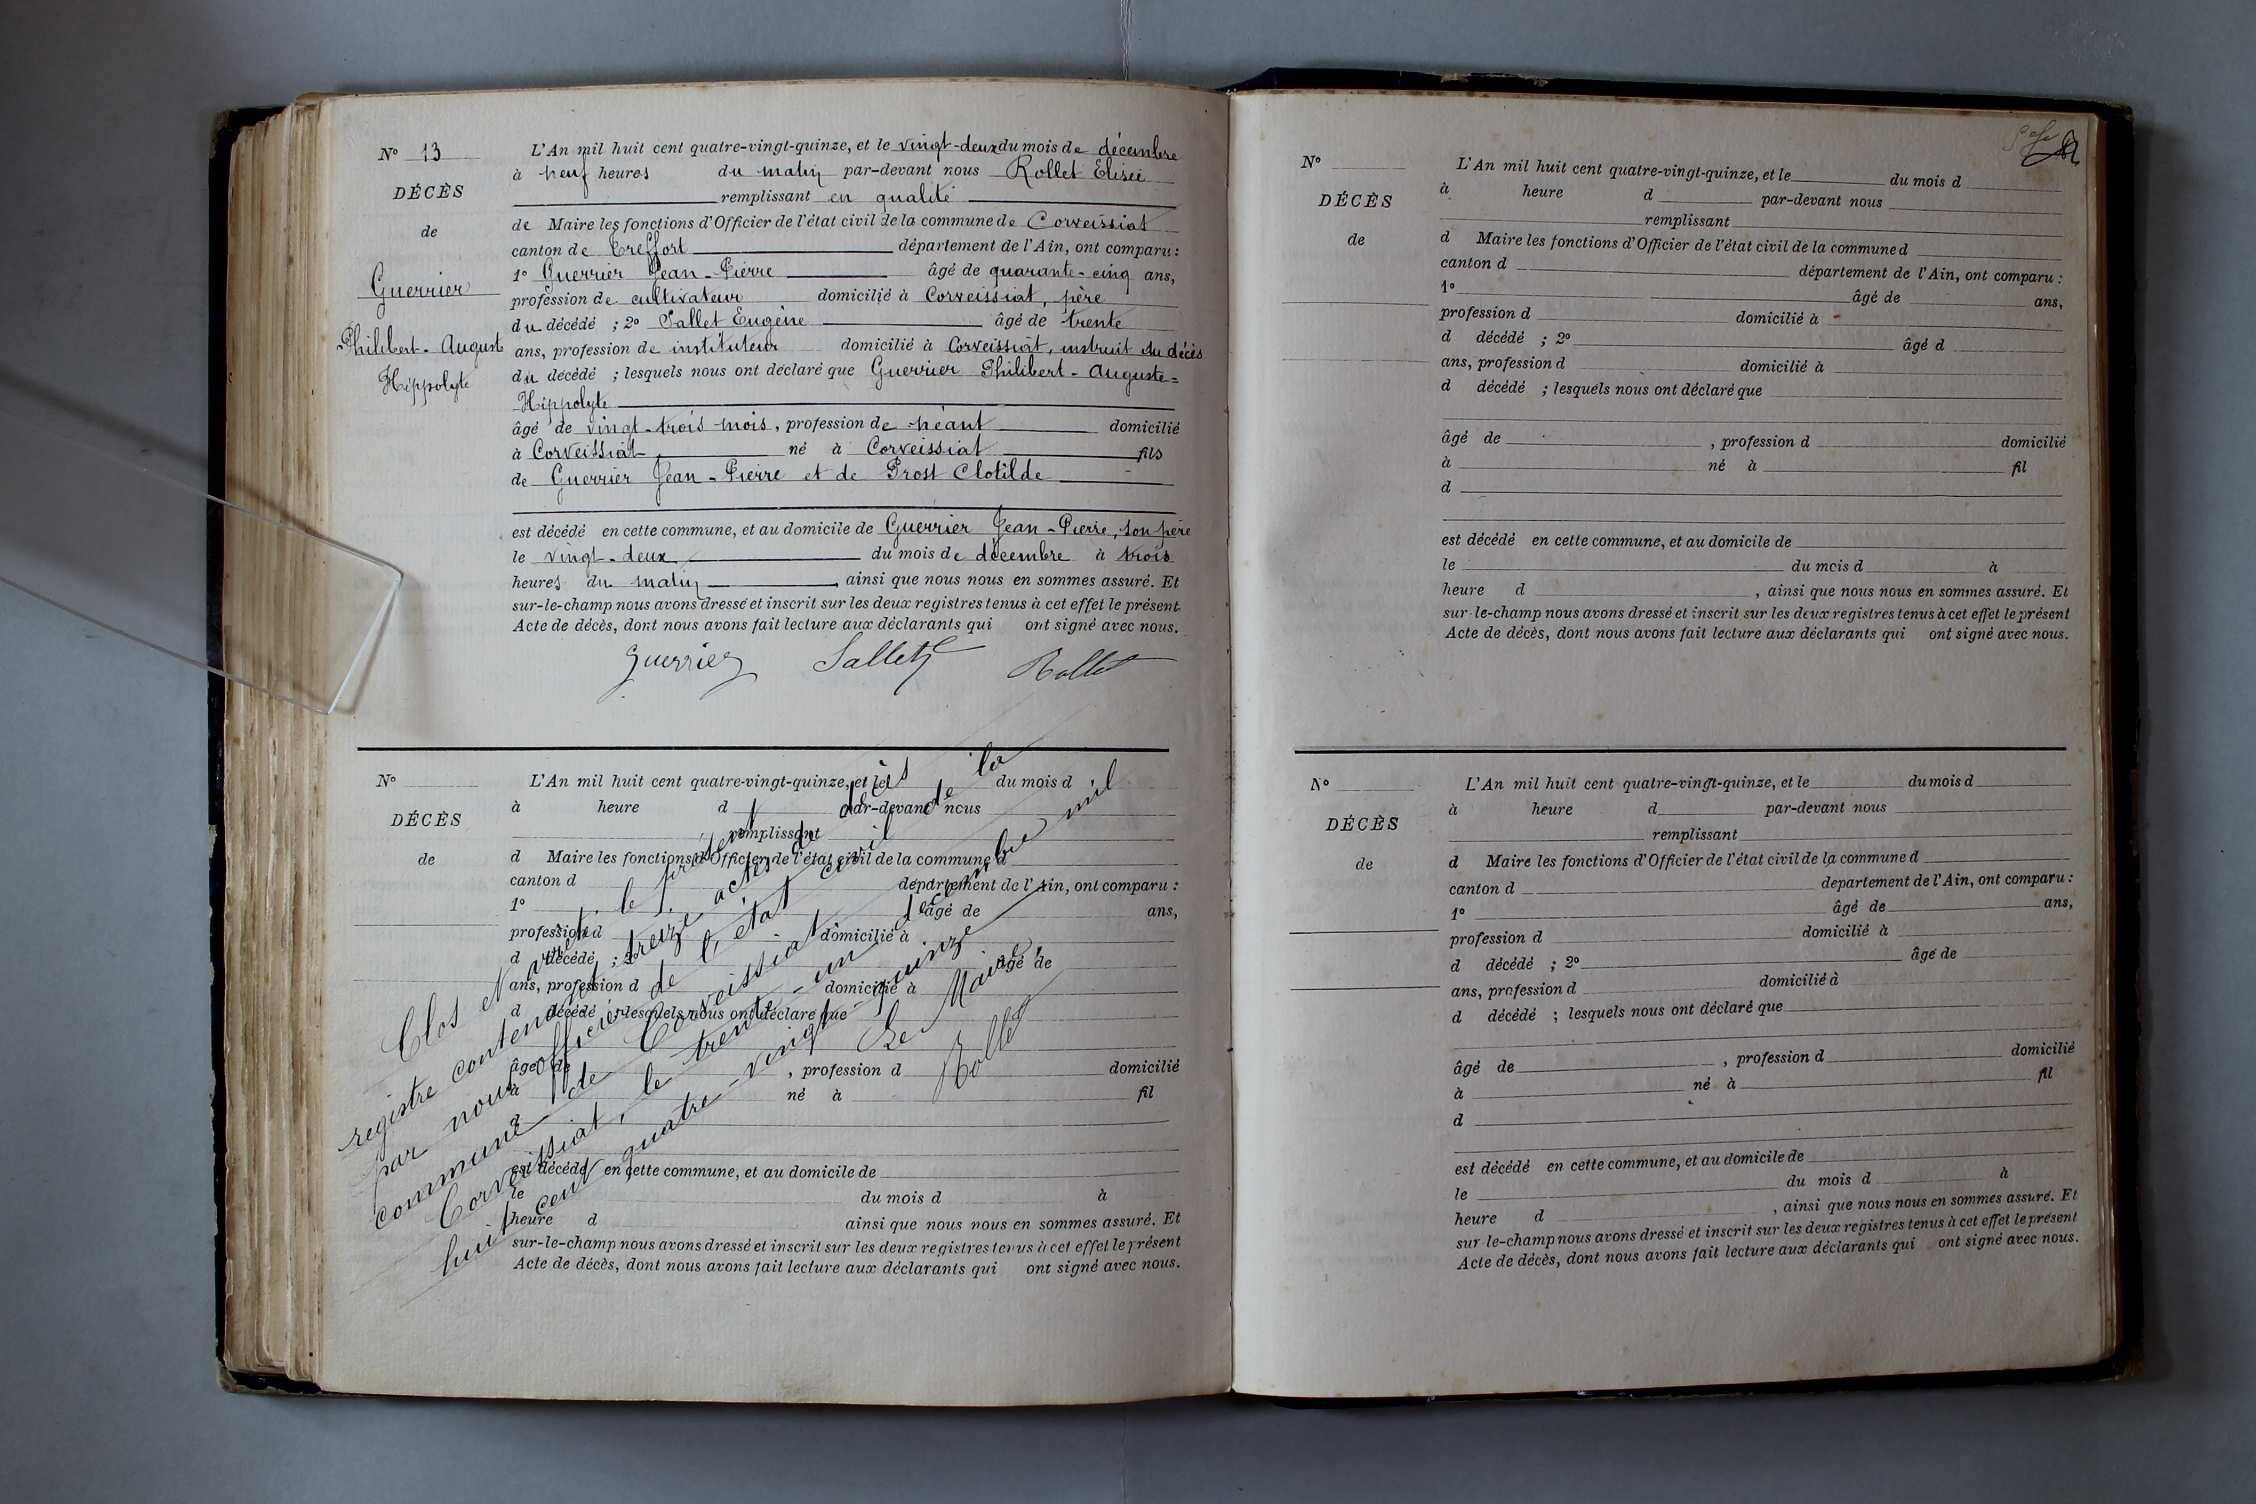 N° 13
DÉCÈS
de
Guerrier
Philibert-August
Hippolyte
L'An mil huit cent quatre-vingt-quinze, et le vingt-deux du mois de décembre
à neuf heures du matin par-devant nous Rollet Elisée
remplissant en qualité
de Maire les fonctions d'Officier de l'état civil de la commune de Corveissiat
canton de Treffort département de l'Ain, ont comparu :
1° Guerrier Jean-Pierre âgé de quarante-cinq ans,
profession de cultivateur domicilié à Corveissiat, père
du décédé ; 2° Sallet Eugène âgé de trente
ans, profession de instituteur domicilié à Corveissiat, instruit du décès
du décédé ; lesquels nous ont déclaré que Guerrier Philibert-Auguste=
Hippolyte
âgé de vingt-trois mois, profession de néant domicilié
à Corveissiat né à Corveissiat fils
de Guerrier Jean-Pierre et de Prost Clotilde
est décédé en cette commune, et au domicile de Guerrier Jean-Pierre, son père
le vingt-deux du mois de décembre à trois
heures du matin, ainsi que nous nous en sommes assuré. Et
sur-le-champ nous avons dressé et inscrit sur les deux registres tenus à cet effet le présent
Acte de décès, dont nous avons fait lecture aux déclarants qui ont signé avec nous.
Guerrier Sallet Rollet
N°
DÉCÈS
de
L'An mil huit cent quatre-vingt-quinze, et le du mois d
à heure d par-devant nous
remplissant
d Maire les fonctions d'Officier de l'état civil de la commune d
canton d département de l'Ain, ont comparu :
1° âgé de ans,
profession d domicilié à
d décédé ; 2° âgé de
ans, profession d domicilié à
d décédé ; lesquels nous ont déclaré que
âgé de , profession d domicilié
à né à fil
d
est décédé en cette commune, et au domicile de
le du mois d à
heure d ainsi que nous nous en sommes assuré. Et
sur-le-champ nous avons dressé et inscrit sur les deux registres tenus à cet effet le présent
Acte de décès, dont nous avons fait lecture aux déclarants qui ont signé avec nous.
Clos et arrêté le présent
registre contenant treize actes de décès
par nous officier de l'état civil de la
commune de Corveissiat
Corveissiat, le trente-un décembre mil
huit cent quatre-vingt-quinze
Le Maire,
Rollet
N°
DÉCÈS
de
L'An mil huit cent quatre-vingt-quinze, et le du mois d
à heure d par-devant nous
remplissant
d Maire les fonctions d'Officier de l'état civil de la commune d
canton d département de l'Ain, ont comparu :
1° âgé de ans,
profession d domicilié à
d décédé ; 2° âgé d
ans, profession d domicilié à
d décédé ; lesquels nous ont déclaré que
âgé de , profession d domicilié
à né à fil
d
est décédé en cette commune, et au domicile de
le du mois d à
heure d , ainsi que nous nous en sommes assuré. Et
sur-le-champ nous avons dressé et inscrit sur les deux registres tenus à cet effet le présent
Acte de décès, dont nous avons fait lecture aux déclarants qui ont signé avec nous.
N°
DÉCÈS
de
L'An mil huit cent quatre-vingt-quinze, et le du mois d
à heure d par-devant nous
remplissant
d Maire les fonctions d'Officier de l'état civil de la commune d
canton d departement de l'Ain, ont comparu :
1° âgé de ans,
profession d domicilié à
d décédé ; 2° âgé de
ans, profession d domicilié à
d décédé ; lesquels nous ont déclaré que
âgé de , profession d domicilié
à né à fil
d
est décédé en cette commune, et au domicile de
le du mois d à
heure d , ainsi que nous nous en sommes assuré. Et
sur le-champ nous avons dressé et inscrit sur les deux registres tenus à cet effet le présent
Acte de décès, dont nous avons fait lecture aux déclarants qui ont signé avec nous.